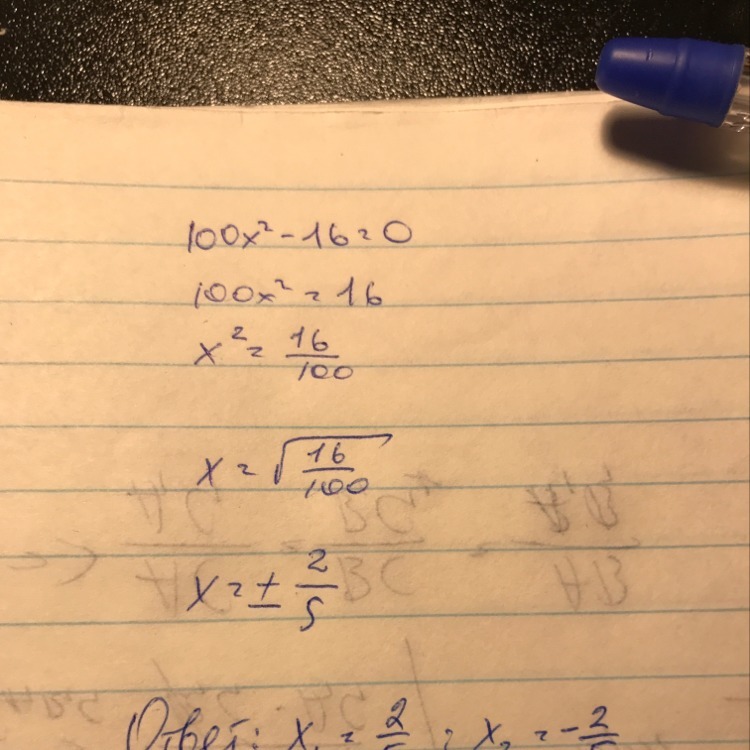 100x² - 16 = 0
100x² = 16
x² = 16/100
x = √(16/100)
x = ± 2/5
Ответ: x₁ = 2/5 ; x₂ = -2/5